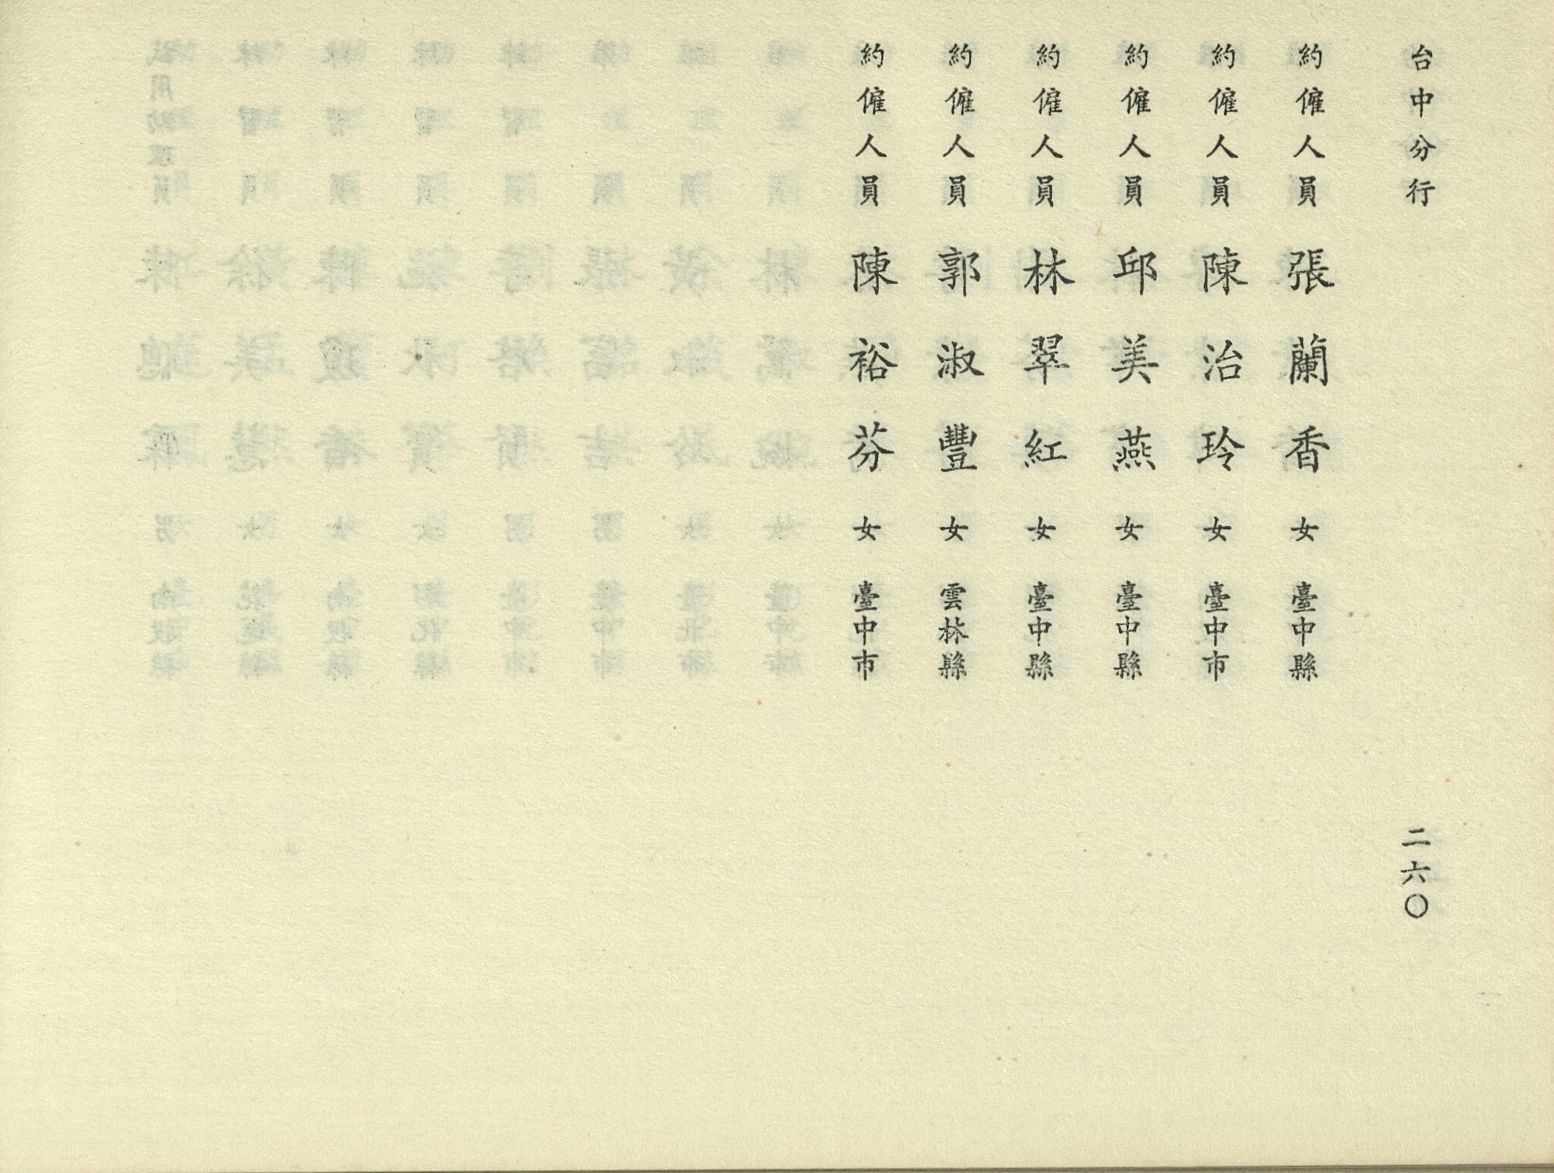 台中分行
二六〇
約僱人員 張蘭香 女 臺中縣
約僱人員 陳治玲 女 臺中市
約僱人員 邱美燕 女 臺中縣
約僱人員 林翠紅 女 臺中縣
約僱人員 郭淑豐 女 雲林縣
約僱人員 陳裕芬 女 臺中市